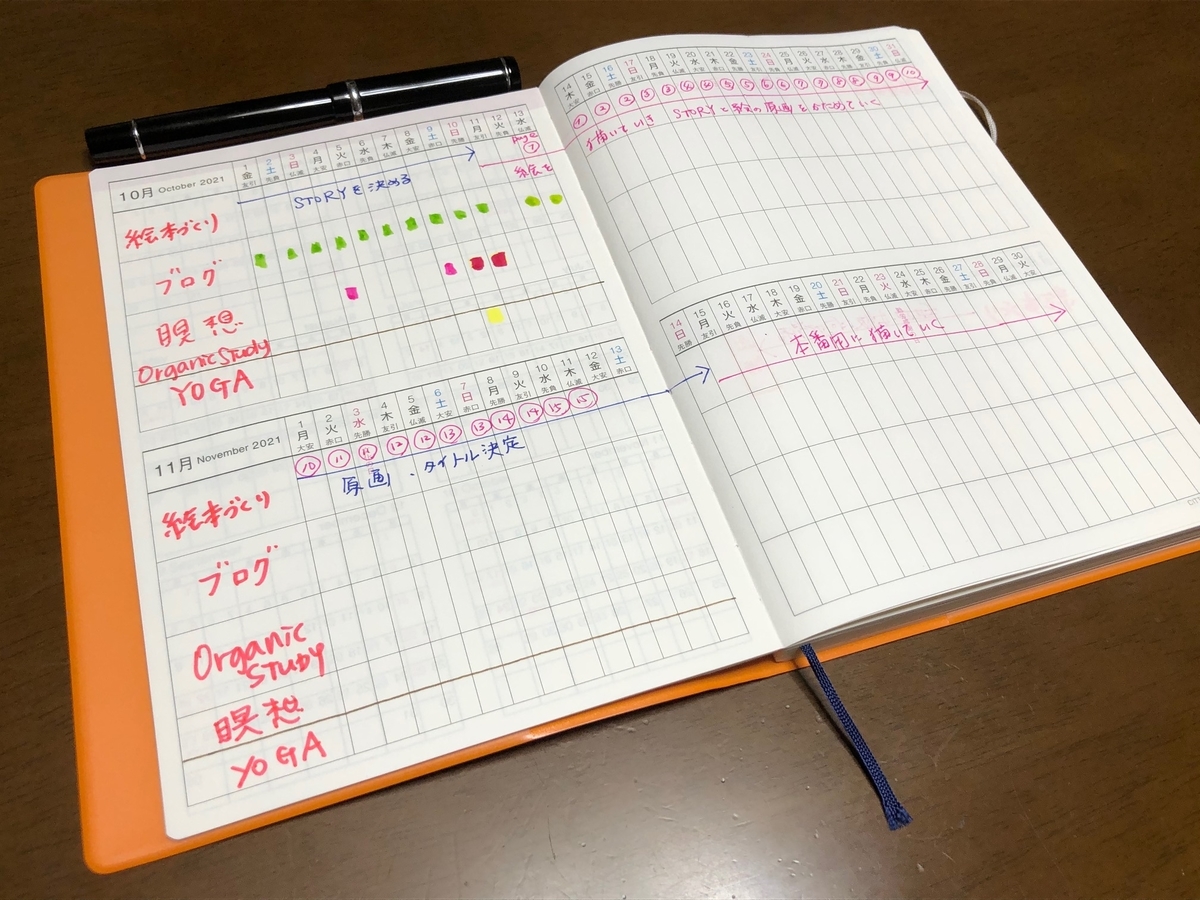 10月 October 2021
1 2 3 4 5 6 7 8 9 10 11 12 13
金 土 日 月 火 水 木 金 土 日 月 火 水
友引 先負 仏滅 大安 赤口 先負 仏滅 大安 赤口 先勝 友引 先負 仏滅
page
⑦
STORYを決める
絵を
絵本づくり
ブログ
瞑想
Organic Study
YOGA
11月 November 2021
1 2 3 4 5 6 7 8 9 10 11 12 13
月 火 水 木 金 土 日 月 火 水 木 金 土
大安 赤口 先勝 友引 仏滅 大安 赤口 先勝 友引 先負 仏滅 大安 赤口
⑩ ⑪ ⑪ ⑫ ⑫ ⑬ ⑬ ⑭ ⑭ ⑮ ⑮
原画・タイトル決定
絵本づくり
ブログ
Organic
STUDY
瞑想
YOGA
14 15 16 17 18 19 20 21 22 23 24 25 26 27 28 29 30 31
木 金 土 日 月 火 水 木 金 土 日 月 火 水 木 金 土 日
大安 赤口 先勝 友引 先負 仏滅 大安 赤口 先勝 友引 先負 仏滅 大安 赤口 先勝 友引 先負 仏滅
描いていき STORYと絵の原画をかためていく
14 15 16 17 18 19 20 21 22 23 24 25 26 27 28 29 30
日 月 火 水 木 金 土 日 月 火 水 木 金 土 日 月 火
先勝 友引 先負 仏滅 大安 赤口 先勝 友引 先負 仏滅 大安 赤口 先勝 友引 先負 仏滅 大安
本番用に描いていく